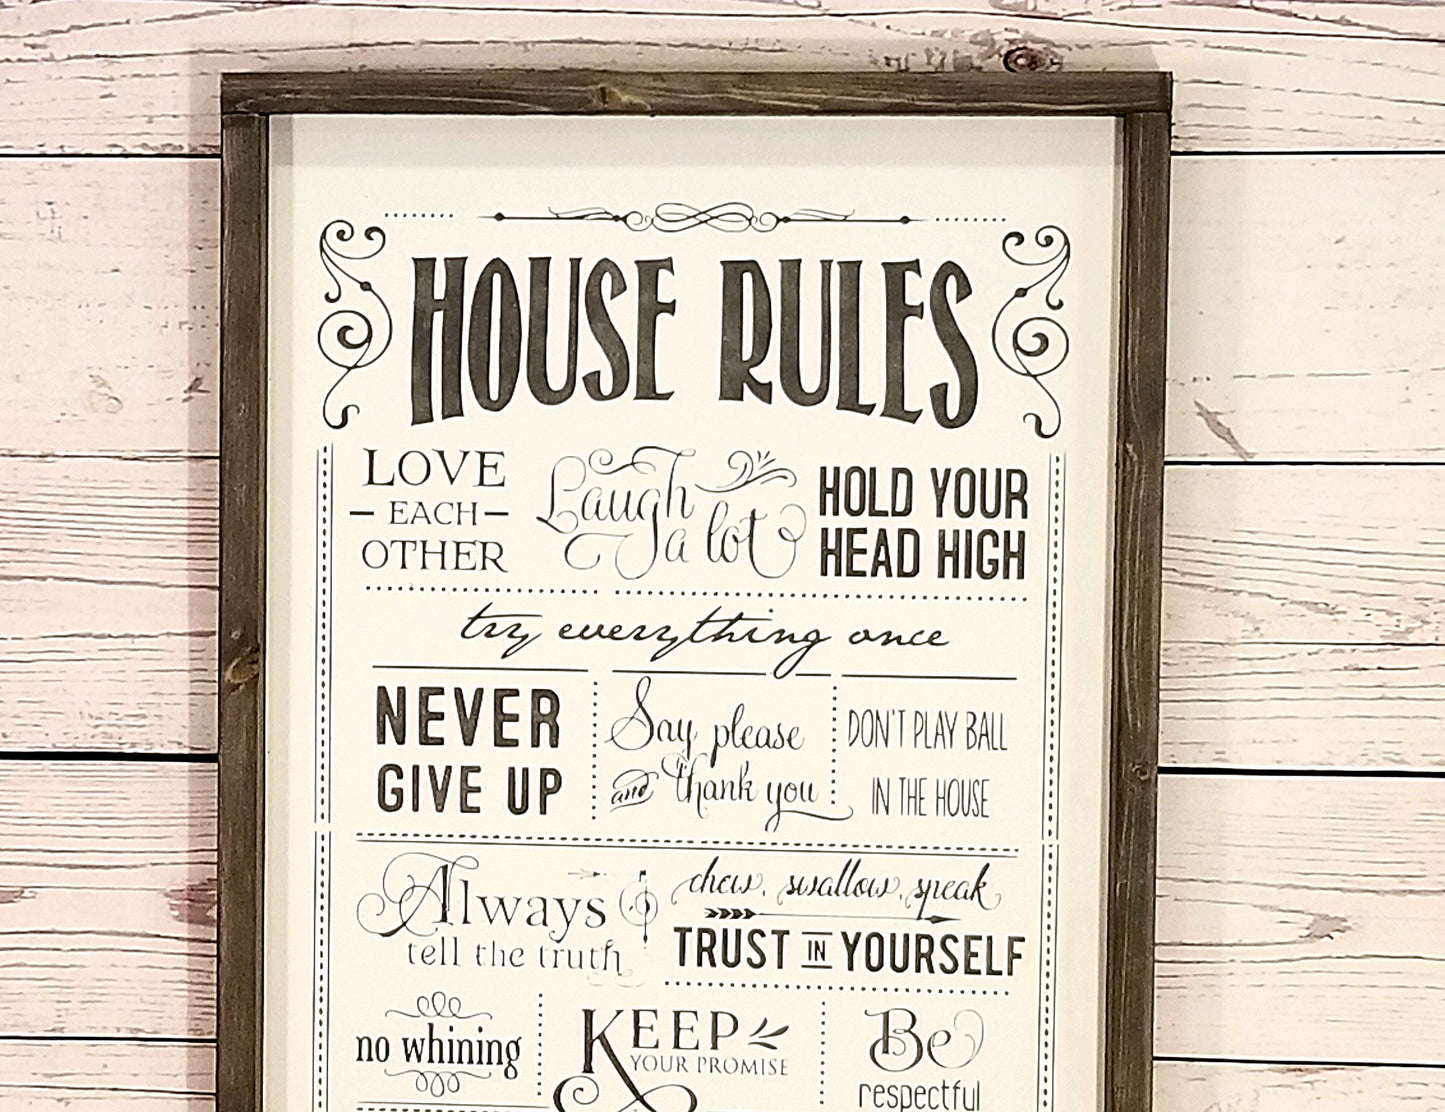 HOUSE RULES
LOVE
EACH
OTHER
Laugh
a lot
HOLD YOUR
HEAD HIGH
try everything once
NEVER
GIVE UP
Say please
and thank you
DON'T PLAY BALL
IN THE HOUSE
Always
tell the truth
chew, swallow, speak
TRUST IN YOURSELF
no whining
KEEP
YOUR PROMISE
Be
respectful